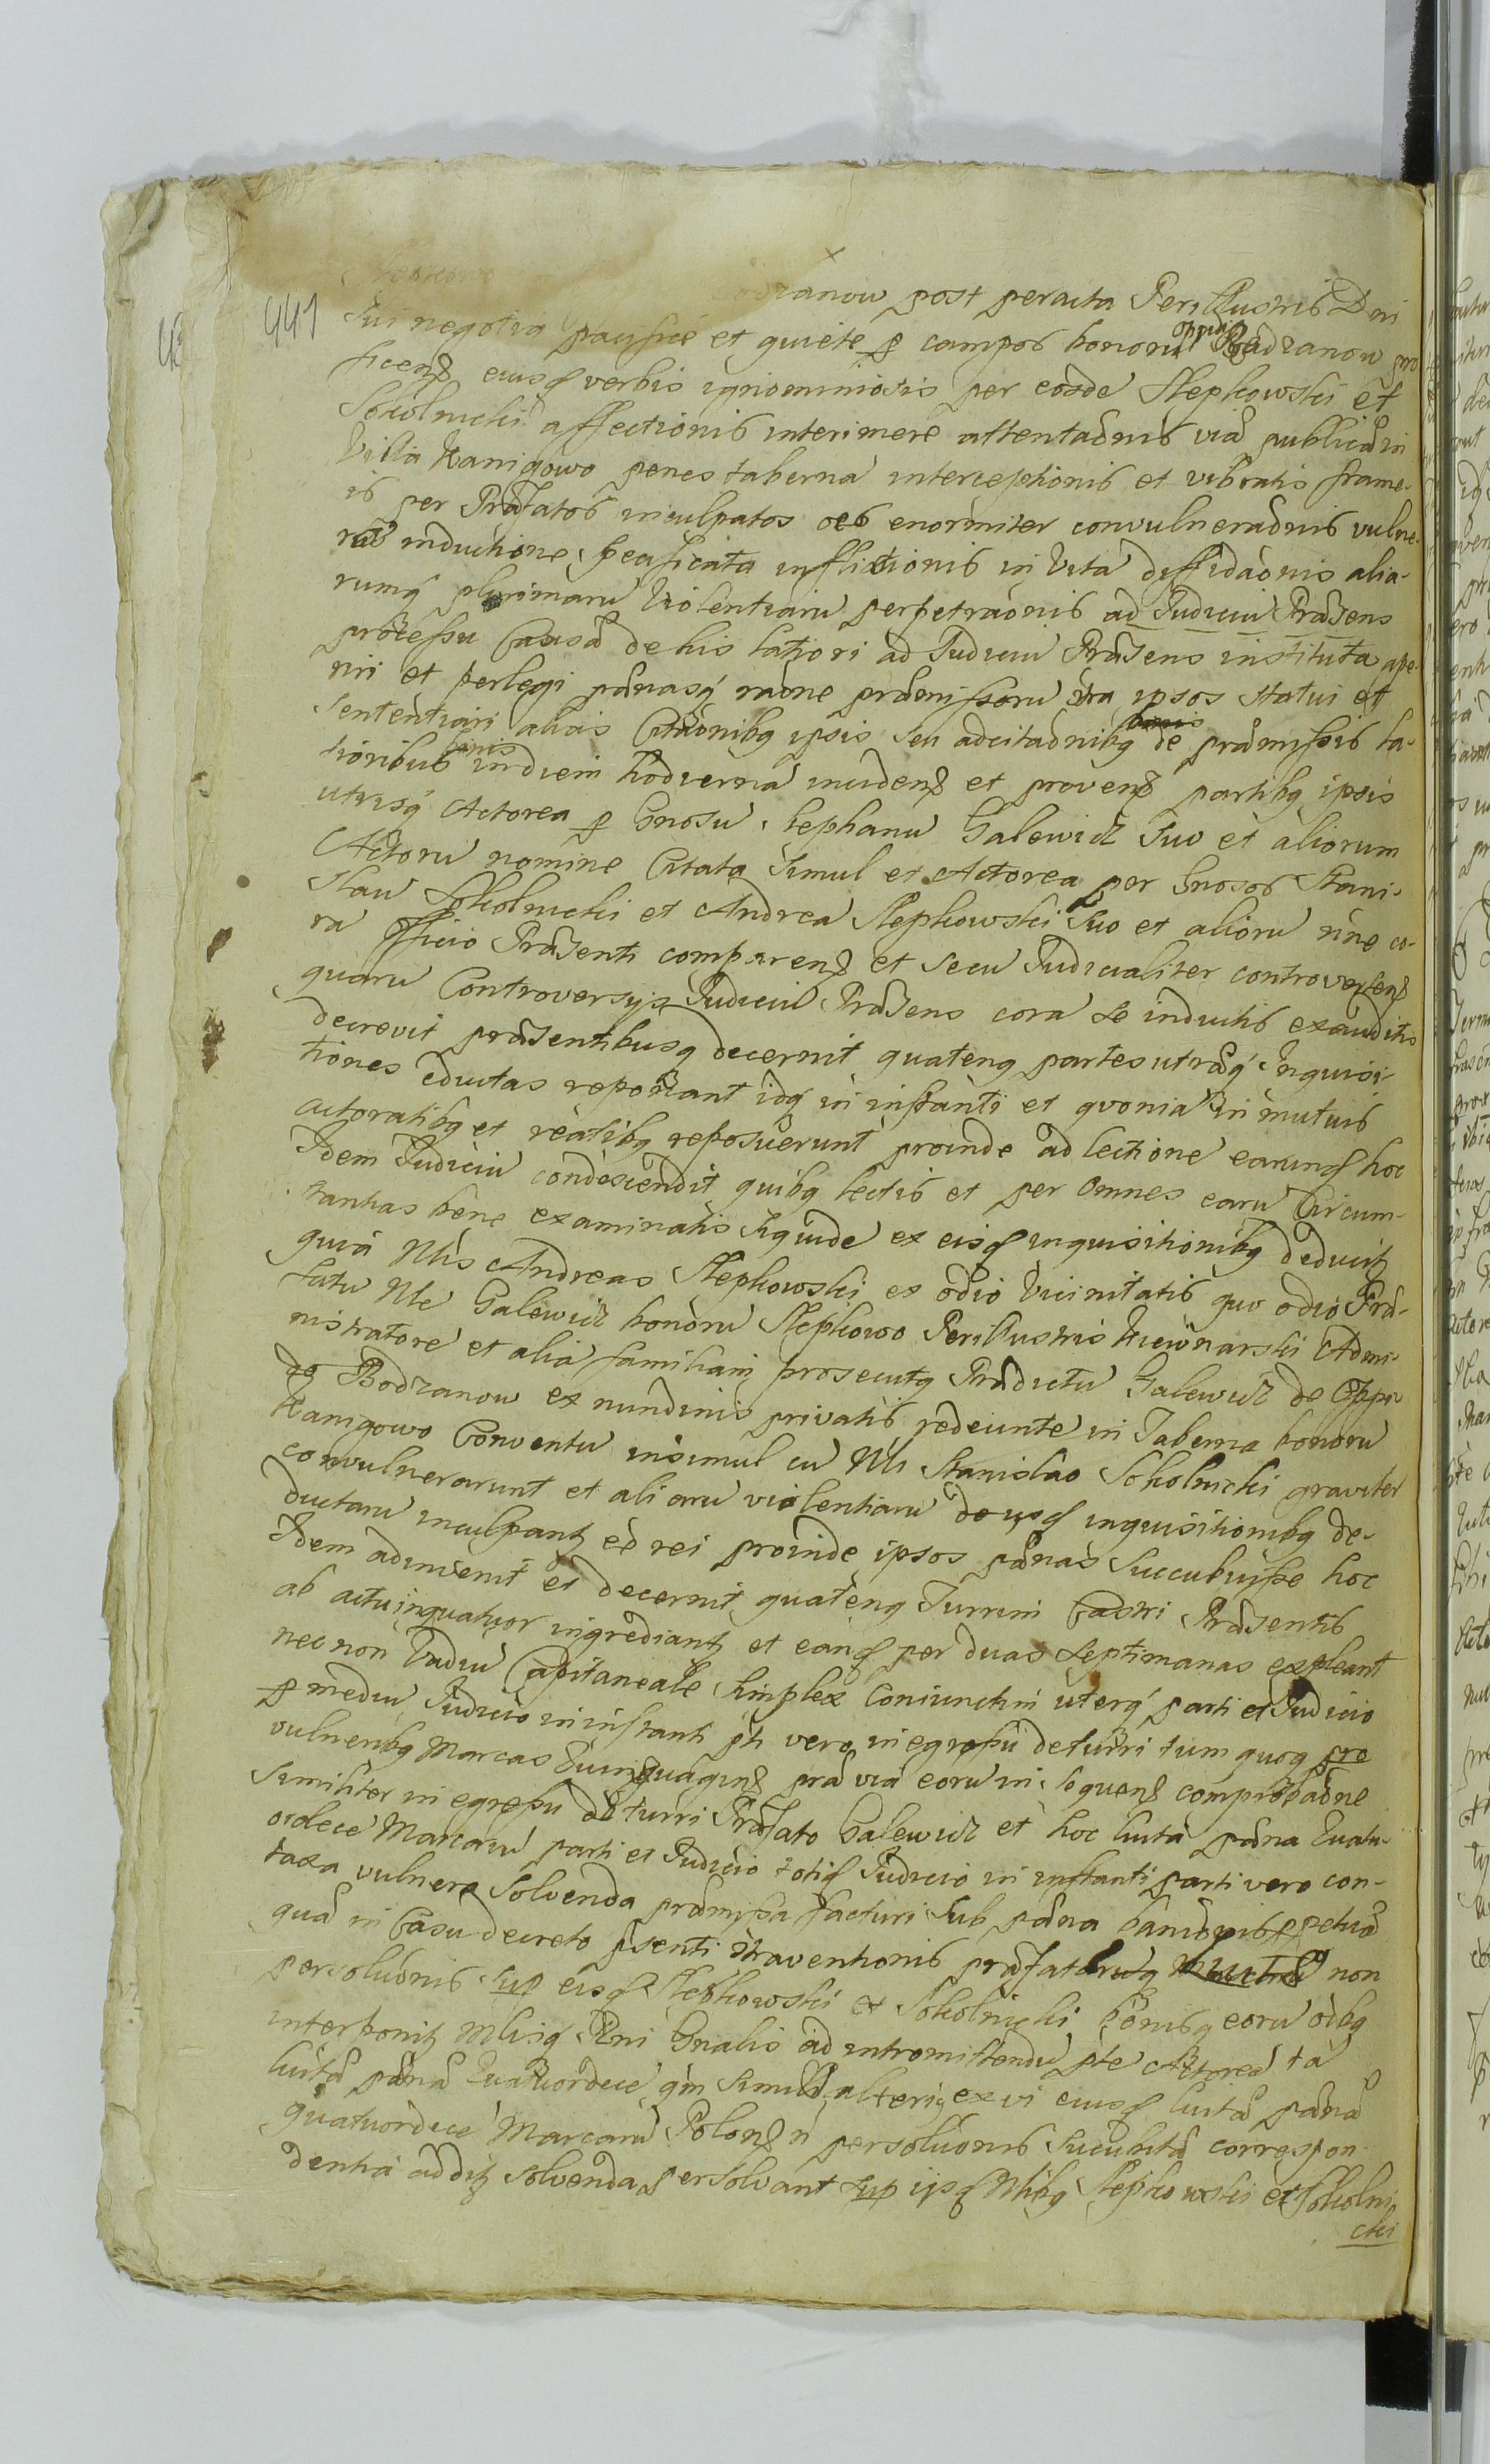 441
odzanow post peracta Perillustris Dni
sui negotia pacifice et quiete p campos bonoru oppidi Bodzanow pro
ficens eiusq verbis ignominiosis per eosde Stepkowski et
Sokolnicki affectionis interimere attentaonis via publica in
Villa Kanigowo penes taberna interceptionis et vibratis frame-
is per Præfatos inculpatos oes enormiter convulneraonis vulne-
ru inductione specificata inflictionis in Vita diffidaonis alia-
rumq plurimaru Violentiaru perpetraonis ad Judiciu Præsens
processu Causa de his latiori ad Judiciu Præsens instituta ape-
riri et perlegi pænasq raone præmissoru ctra ipsos statui et
sententiari alias Citaonibq ipsis seu adcitaonibq de præmissis la-
tioribus in diem hodierna incidens et provens partibq ipsis
utrisq Actorea p Gnosu Stephanu Galewicz suo et aliorum
Actoru nomine Citata simul et Actorea per Gnosos Stani-
slau Sokolnicki et Andrea Stepkowski suo et alioru nne co-
ra officio Præsenti comparens et secu Judicialiter controvertens
quaru Controversys Judiciu Præsens cora se inductis exauditis
decrevit præsentibusq decernit quatenq partes utraq Inquisi-
tiones eductas reportant idq in instanti et quonia in mutuis
actoratibq et reatibq reposuerunt proinde ad lectione earunq hoc
Idem Judiciu condescendit quibq lectis et per omnes earu Circum-
stantias bene examinatis siquide ex eisq inquisitionibq deducit
quia Nlis Andreas Stepkowski ex odio Vicinitatis quo odio Præ-
fatu Nle Galewicz bonoru Stepkowo Perillustris Admi-
nistratore et alia familiam prosecutq Prædictu Galewicz de Oppi
do Bodzanow ex nundinis privatis redeunte in Taberna bonoru
Kanigowo Conventu insimul cu Nli Stanislao Sokolnicki graviter
convulnerarunt et aliaru violentiaru de ijsq inquisitionibq de-
ductaru inculpant eo rei proinde ipsos pænas succubuisse hoc
Idem adinvenit et decernit quatenq Turrim Castri Præsentis
ab actu in quatuor ingrediant et eanq per duas septimanas expleant
nec non Vadiu Capitaneale simplex Coniunctim uterq parti et Judicio
p mediu Judicio in instanti pti vero in egressu de turri tum quoq pro
vulneribq Marcas Quinquagins prævia eoru in sequens comprobaone
similiter in egressu de turri Præfato Galewicz et hoc luita pæna Quatu-
ordece Marcaru parti et Judicio totiq Judicio in instanti parti vero con-
taxa vulnera solvenda præmissa facturi sub pæna banionis ppetua
qua in Casu decreto psenti ctraventionis præfatoruq non
persoluonis sup eisq Stepkowski et Sokolnicki bonisq eoru oibq
interponit Mlisq Rni Gnalis ad intromittendu pte Actorea ta
luita pæna Quatuordece qm simili alteriq ex vi eiusq luita pæna
quatuordece Marcaru Polons n persoluonis sucubita correspon-
dentia addit solvenda persolvant sup ijsq Nlibq Stepkowski et Sokolni
cki